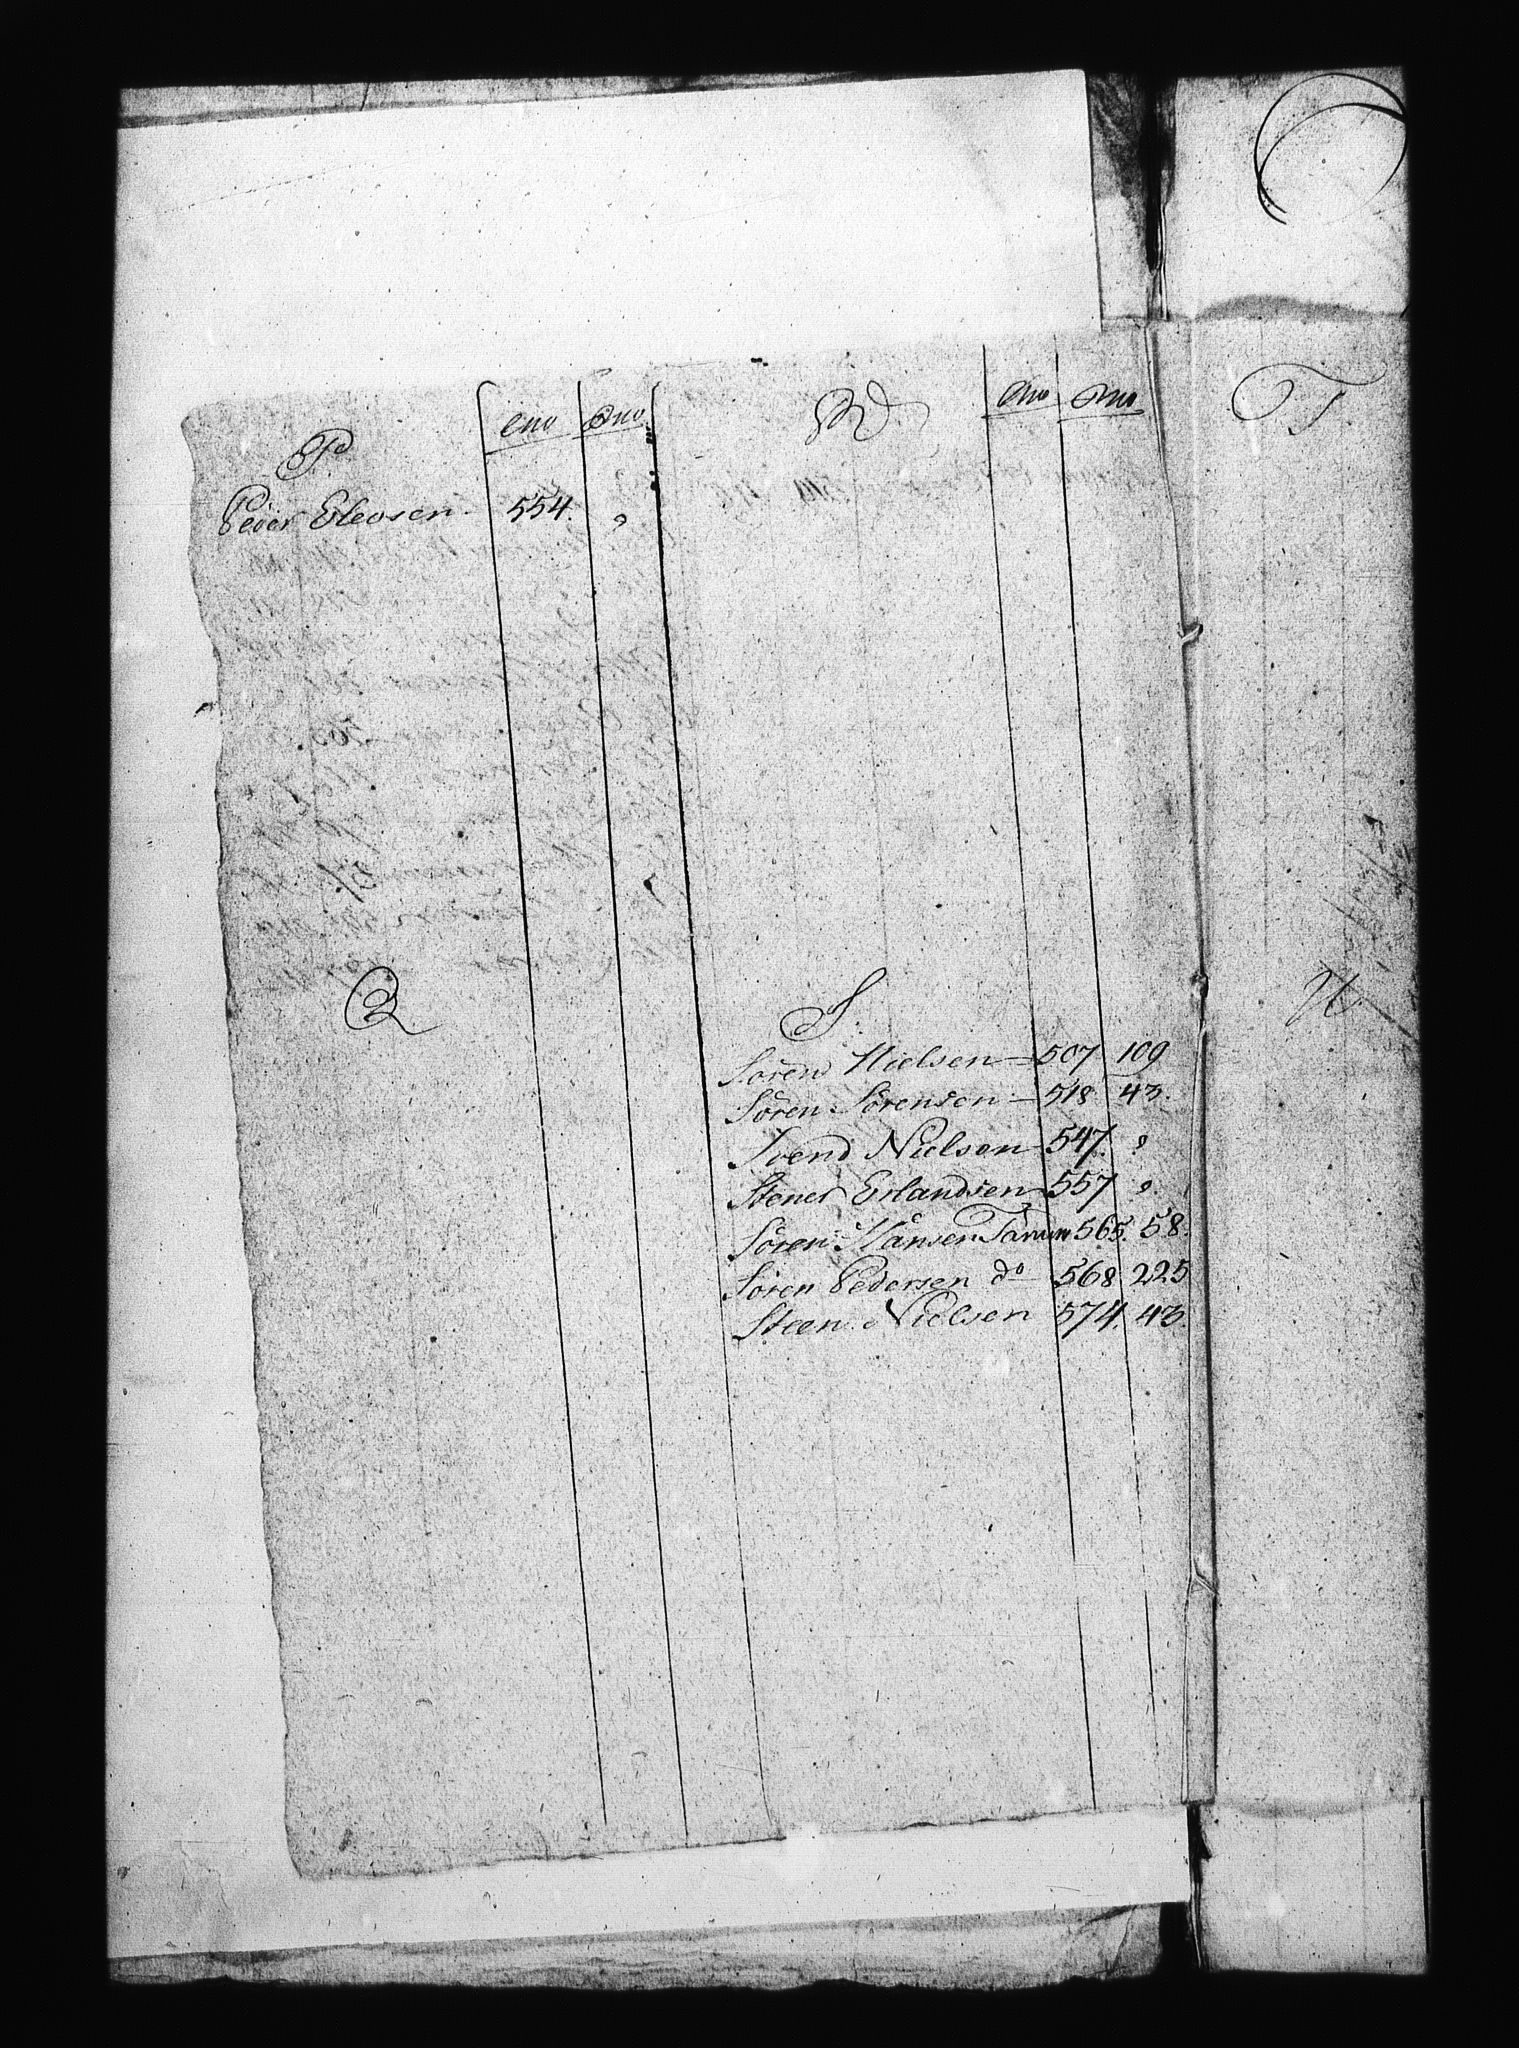 P
Peder Elevsen 554. „
Q
R
Søren Nielsen 507 109
Søren Sørensen 518 43.
Svend Nielsen 547. „
Stener Erlandsen 557 „
Søren Hansen Tanum 565. 58.
Søren Pedersen do 568 225
Steen Nielsen 574. 43.
S
T
U